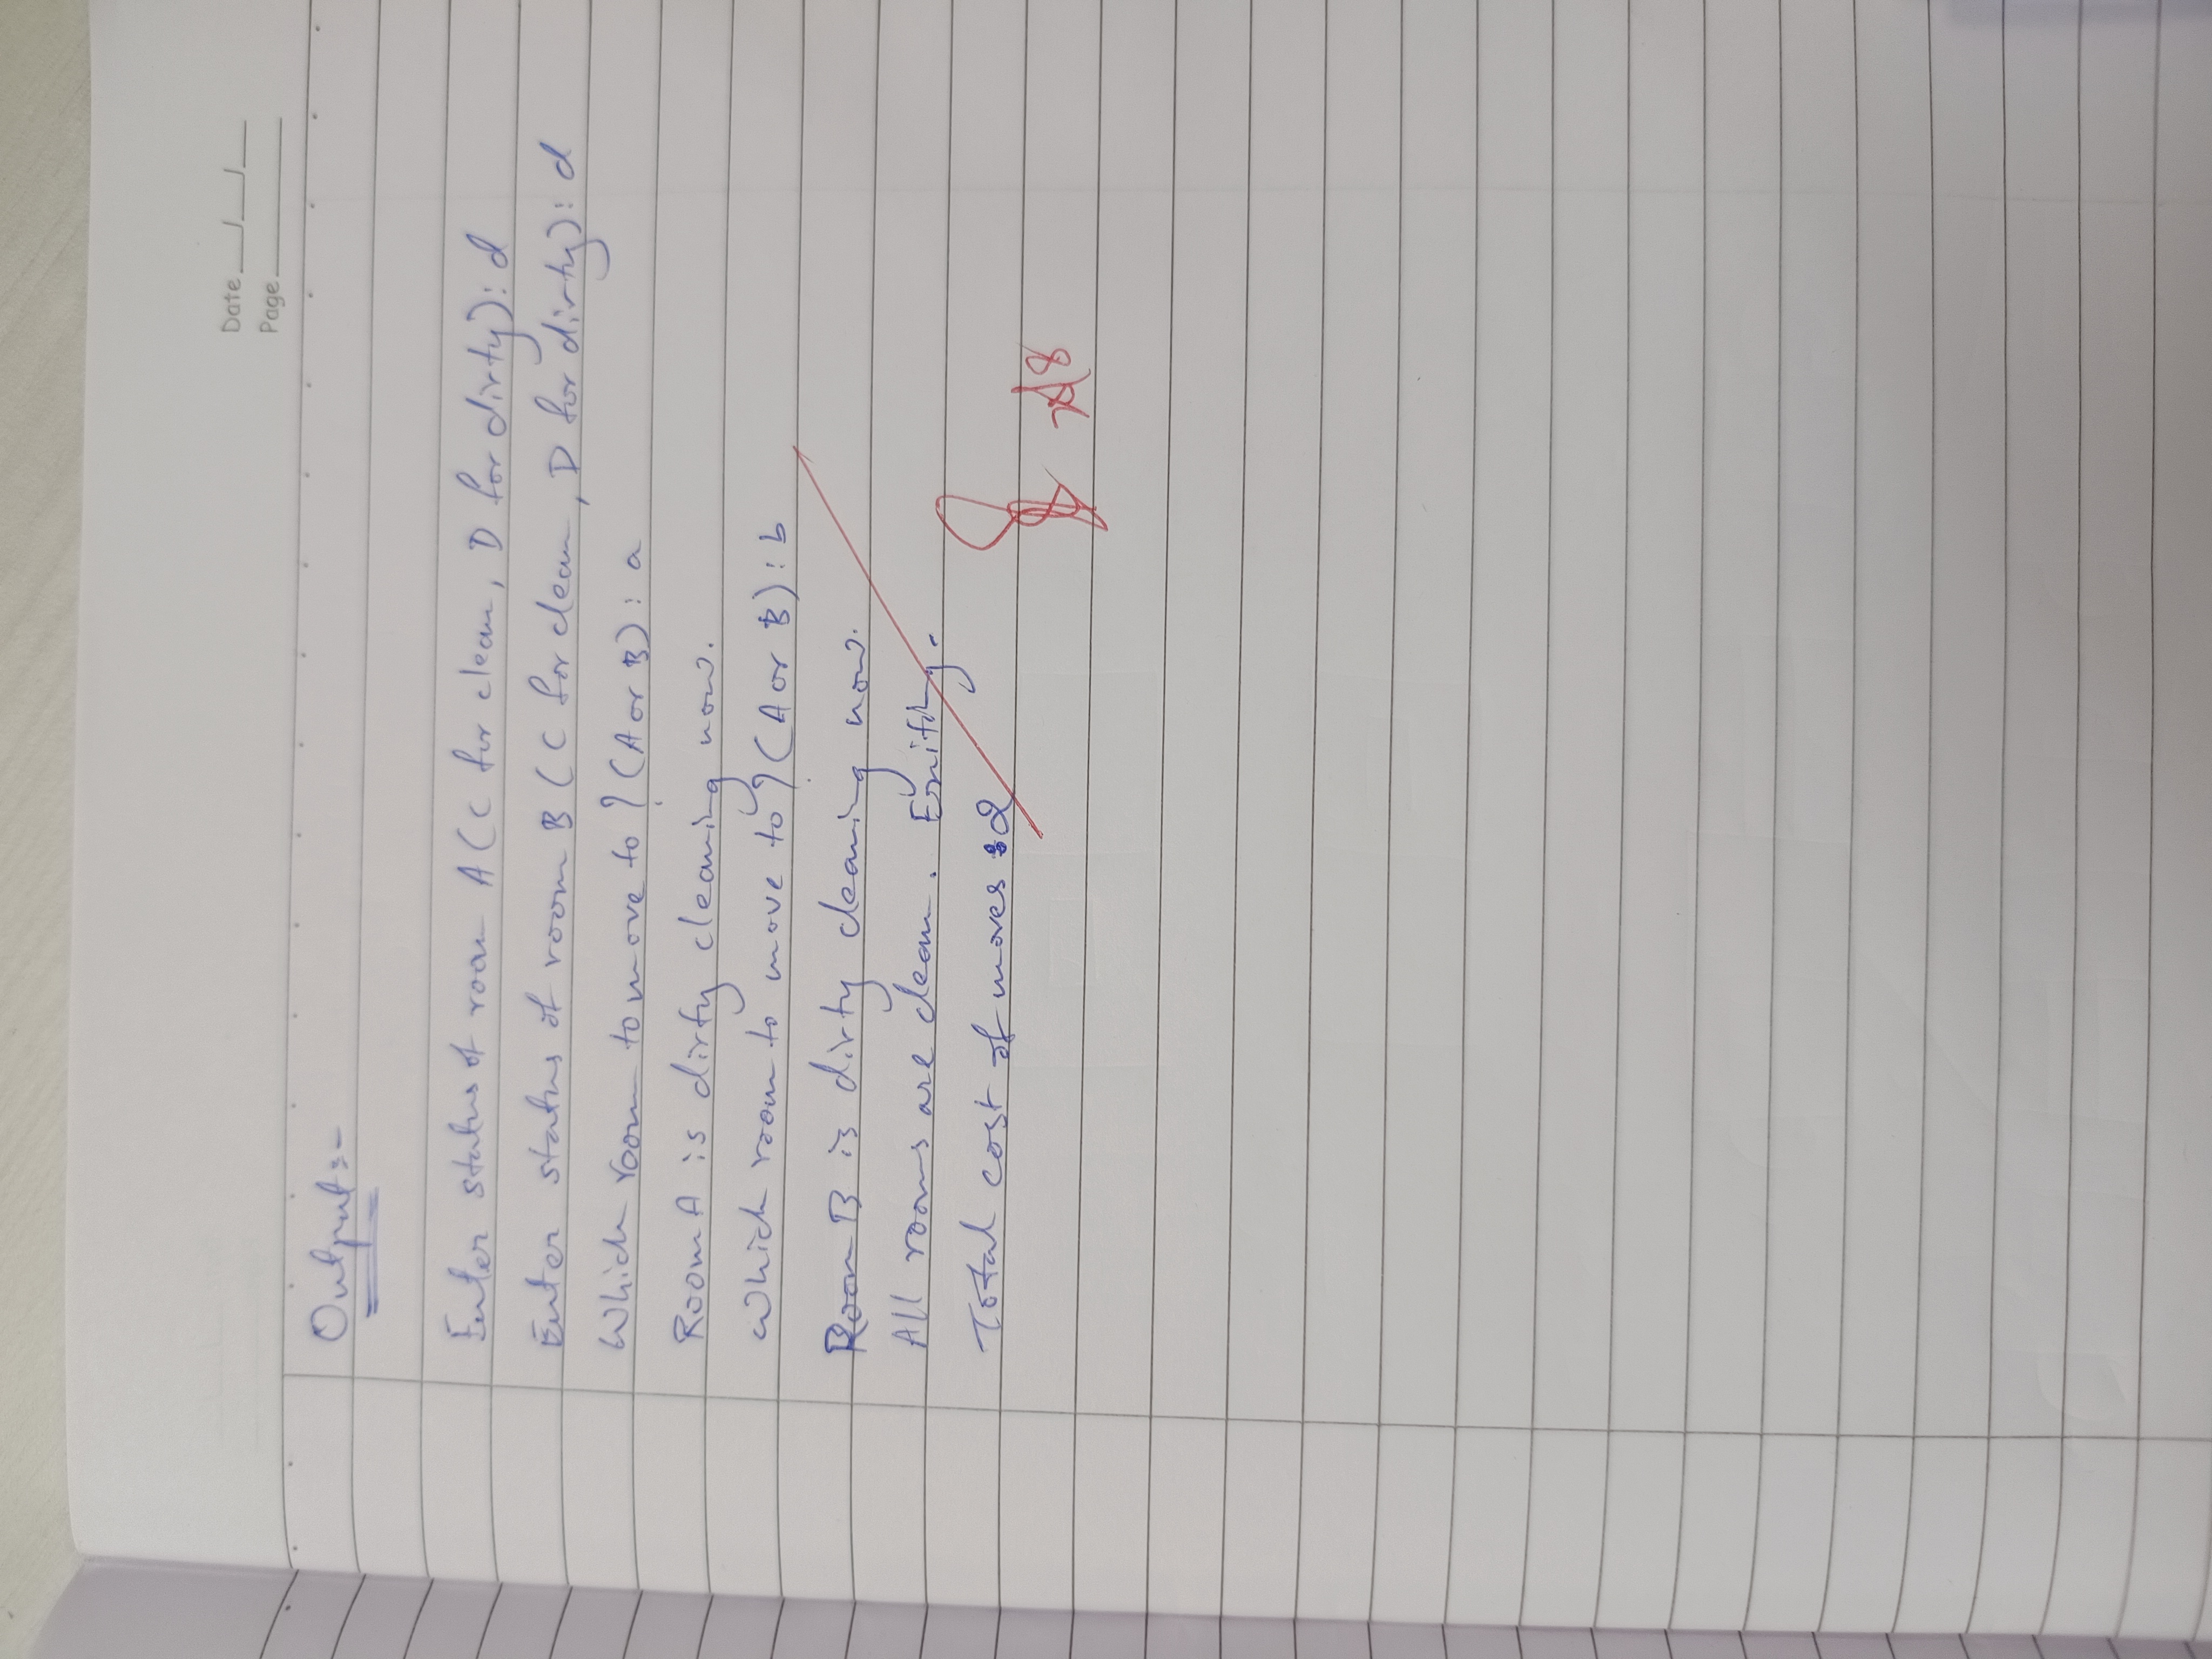 Date __/__/__
Page ______
Output:-
Enter status of room A (C for clean, D for dirty): d
Enter status of room B (C for clean, D for dirty): d
Which room to move to? (A or B): a
Room A is dirty cleaning now.
Which room to move to? (A or B): b
Room B is dirty cleaning now.
All rooms are clean.
Total cost of moves : 2